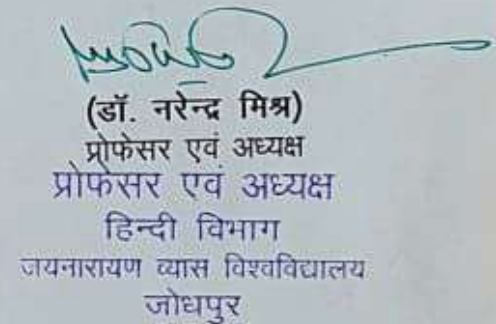 (डॉ. नरेन्द्र मिश्र)
प्रोफेसर एवं अध्यक्ष
प्रोफेसर एवं अध्यक्ष
हिन्दी विभाग
जयनारायण व्यास विश्वविद्यालय
जोधपुर